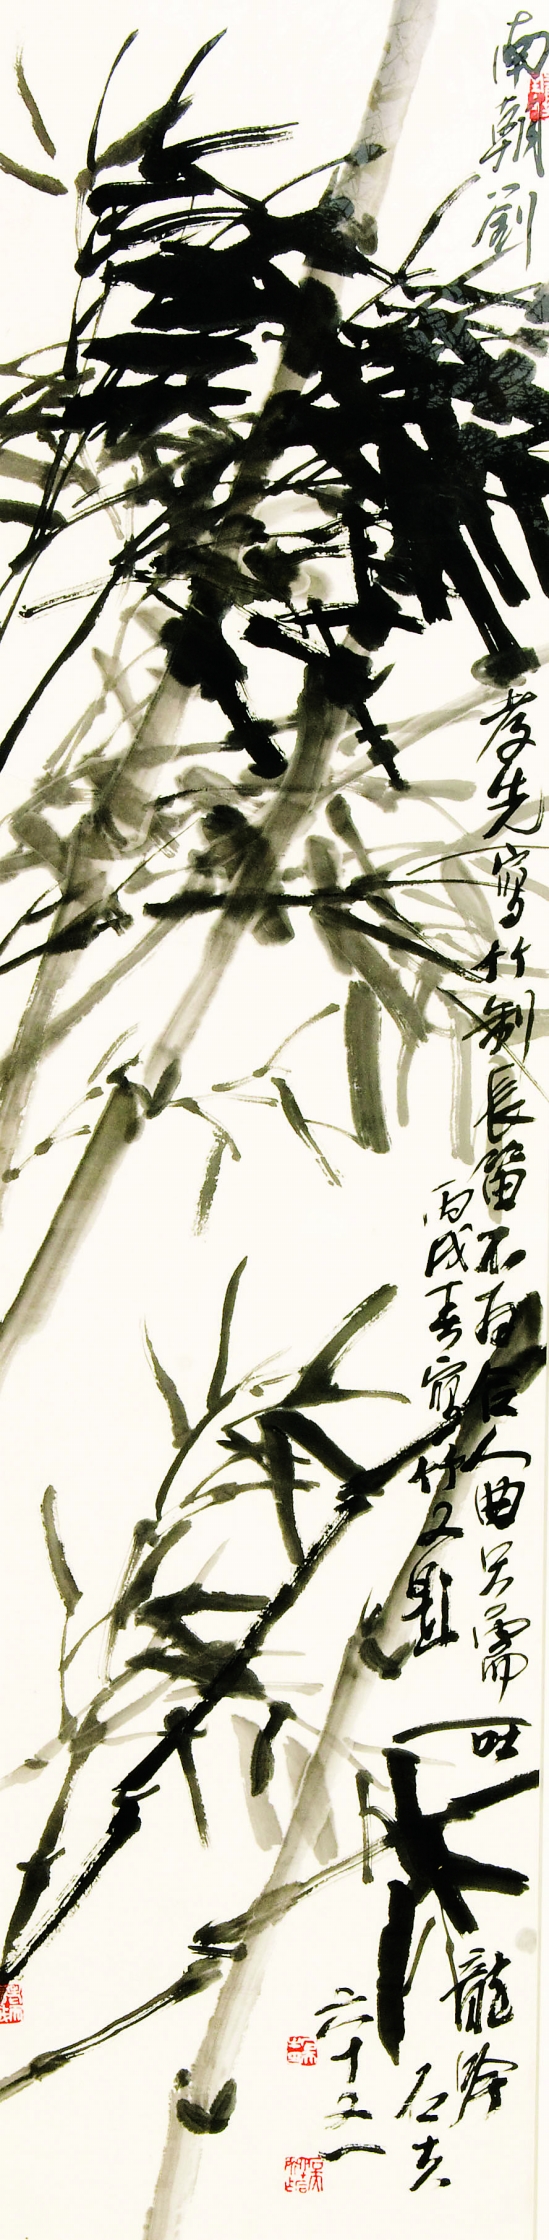 南朝劉孝先寫竹製長笛不為合人曲只需吐龍吟
丙戌春寫竹又題
石夫
六十又一